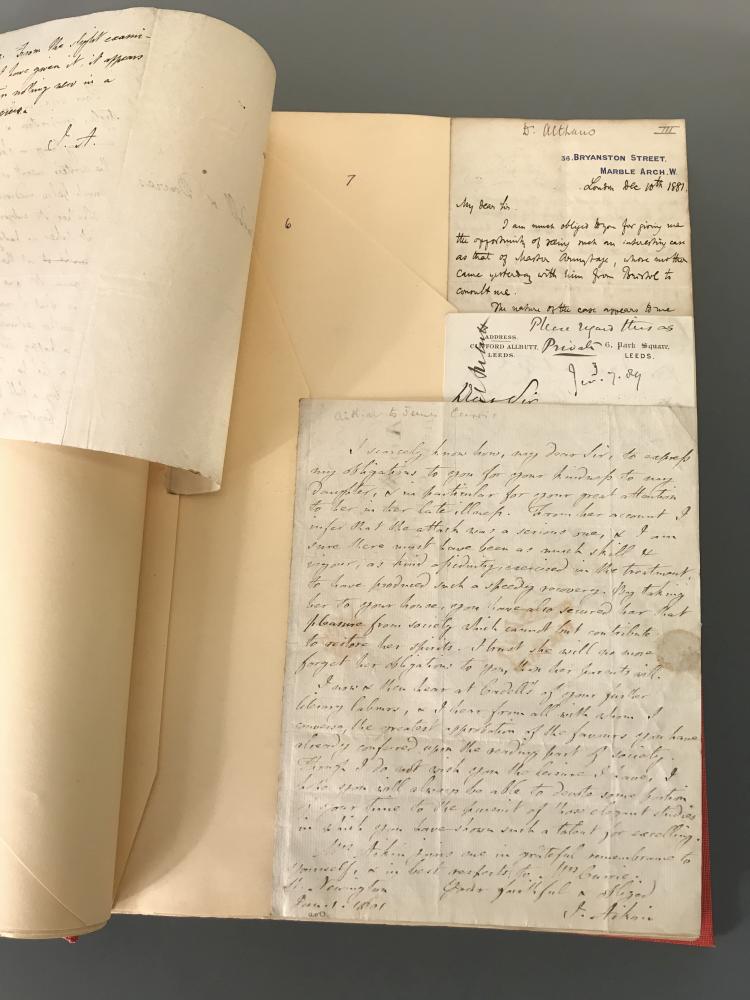 From the slight exami-
I have given it, it appears
nothing new in a
J. A.
7
6
Dr. Althaus
III
36, BRYANSTON STREET,
MARBLE ARCH. W.
London Dec 10th 1881.
My dear Sir.
I am much obliged to you for giving me
the opportunity of seeing such an interesting case
as that of Master Armytage, whose mother
came yesterday with him from Bristol to
consult me.
The nature of the case appears to me
Please regard this as
Private
ADDRESS.
CLIFFORD ALLBUTT,
LEEDS.
6, Park Square,
LEEDS.
7. 89
Dear Sir
Aikin to James Currie
I scarcely know how, my dear Sir, to express
my obligations to you for your kindness to my
daughter, & in particular for your great attention
to her in her late illness. From her account I
infer that the attack was a serious one, & I am
sure there must have been as much skill &
vigour, as kind assiduity, exercised in the treatment,
to have produced such a speedy recovery. By taking
her to your house, you have also secured her that
pleasure from society which cannot but contribute
to restore her spirits. I trust she will no more
forget her obligations to you, than her parents will.
I now & then hear at Cadell's of your further
literary labours, & I hear from all with whom I
converse, the greatest approbation of the favours you have
already conferred upon the reading part of society.
Though I do not wish you the leisure I have, I
hope you will always be able to devote some portion
of your time to the pursuit of those elegant studies
in which you have shown such a talent for excelling.
Mrs Aikin joins me in grateful remembrance to
yourself, & in best respects to Mrs Currie.
St. Newington
Your faithful & obliged
J. Aikin